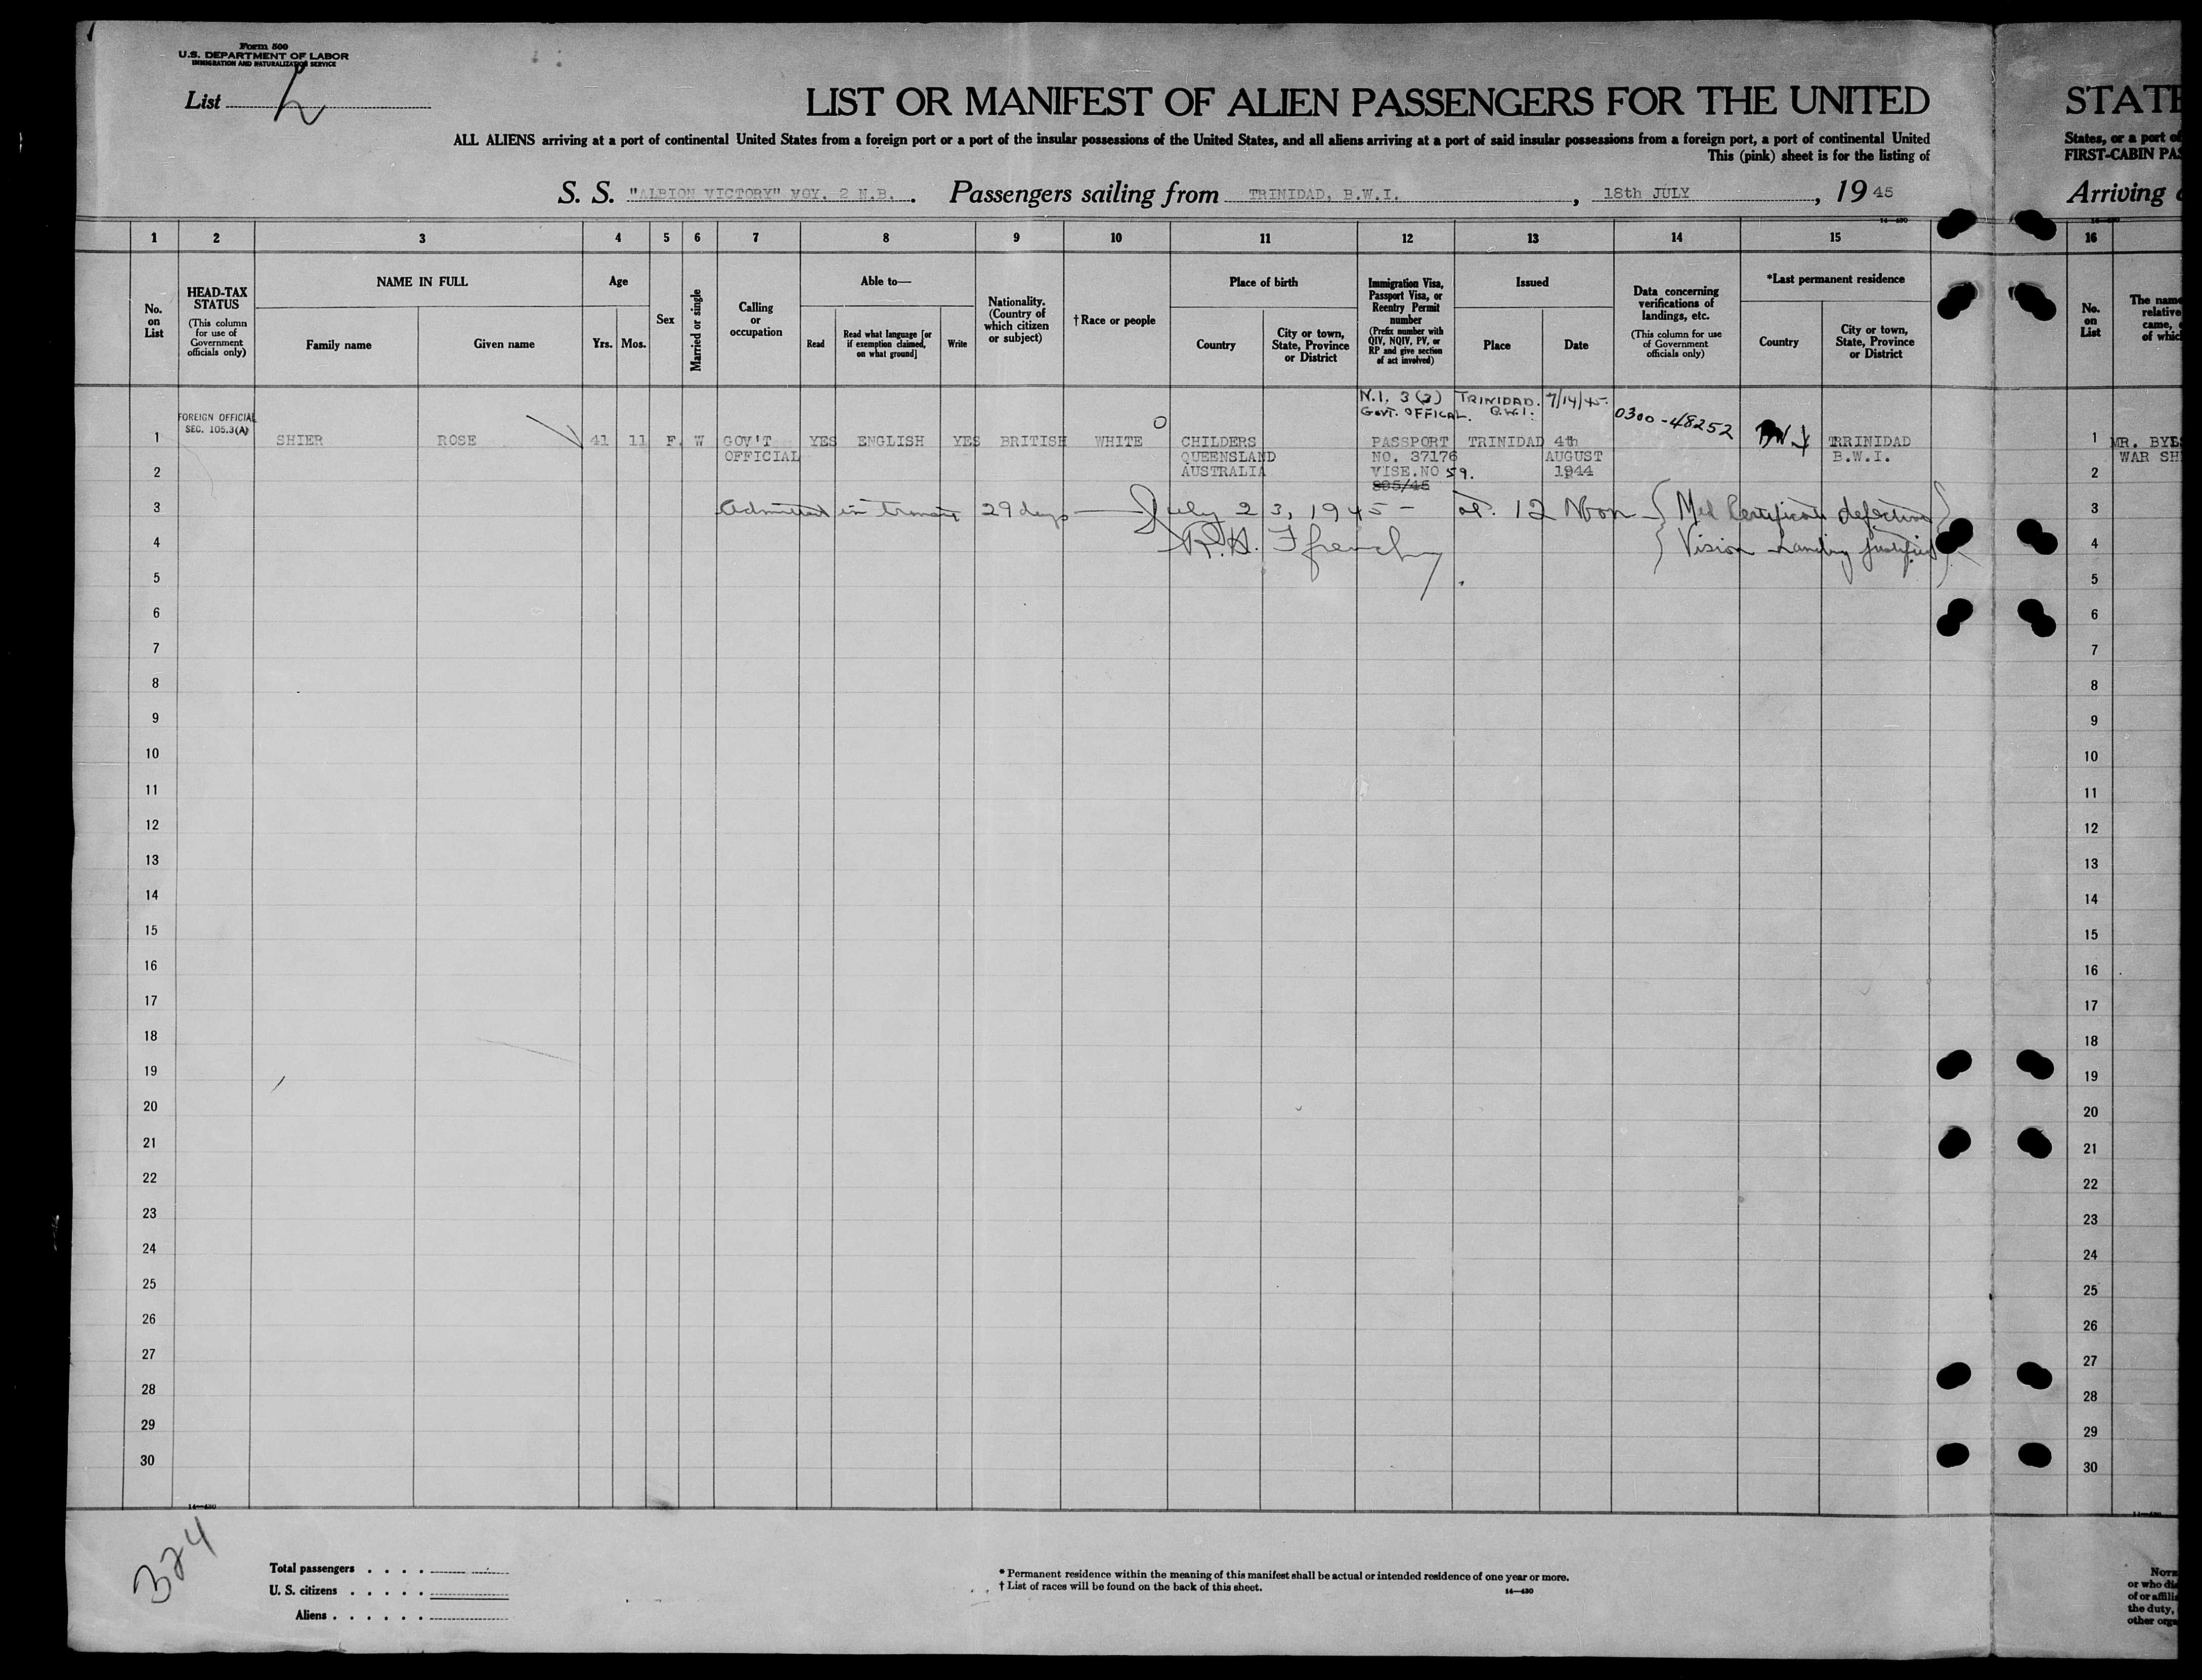 Form 500
U.S. DEPARTMENT OF LABOR
IMMIGRATION AND NATURALIZATION SERVICE
List 2
LIST OR MANIFEST OF ALIEN PASSENGERS FOR THE UNITED
STATE
ALL ALIENS arriving at a port of continental United States from a foreign port or a port of the insular possessions of the United States, and all aliens arriving at a port of said insular possessions from a foreign port, a port of continental United
States, or a port of
This (pink) sheet is for the listing of
FIRST-CABIN PAS
S. S. "ALBION VICTORY" VOY. 2 N.B. . Passengers sailing from TRINIDAD, B.W.I. , 18th JULY , 19 45
Arriving
1 2 3 4 5 6 7 8 9 10 11 12 13 14 15 16
No. on List
HEAD-TAX STATUS
(This column for use of Government officials only)
NAME IN FULL
Family name
Given name
Age
Yrs. Mos.
Sex
Married or single
Calling or occupation
Able to—
Read
Read what language [or if exemption claimed, on what ground]
Write
Nationality. (Country of which citizen or subject)
† Race or people
Place of birth
Country
City or town, State, Province or District
Immigration Visa, Passport Visa, or Reentry Permit number
(Prefix number with QIV, NQIV, PV, or RP and give section of act involved)
Issued
Place
Date
Data concerning verifications of landings, etc.
(This column for use of Government officials only)
*Last permanent residence
Country
City or town, State, Province or District
No. on List
The name
relative
came,
of which
N.I. 3 (3) TRINIDAD. 7/14/45.
GOVT. OFFICAL. B.W.I.
FOREIGN OFFICIAL
SEC. 105.3(A)
0300-48252
1 SHIER ROSE 41 11 F. W GOV'T YES ENGLISH YES BRITISH WHITE CHILDERS PASSPORT TRINIDAD 4th TRINIDAD 1 MR. BYE
OFFICIAL QUEENSLAND NO. 37176 AUGUST B.W.I. WAR SH
2 AUSTRALIA VISE.NO 59. 1944 2
895/45
3 Admitted in transit 29 days July 23, 1945 - at 12 Noon Med Certificate defective
4 R.H. Ffrench Vision Landing justified 4
5 5
6 6
7 7
8 8
9 9
10 10
11 11
12 12
13 13
14 14
15 15
16 16
17 17
18 18
19 19
20 20
21 21
22 22
23 23
24 24
25 25
26 26
27 27
28 28
29 29
30 30
14—430
324
Total passengers . . . .
U. S. citizens . . . . .
Aliens . . . . . .
* Permanent residence within the meaning of this manifest shall be actual or intended residence of one year or more.
† List of races will be found on the back of this sheet.
14—430
NOTE
or who di
of or affili
the duty,
other orga